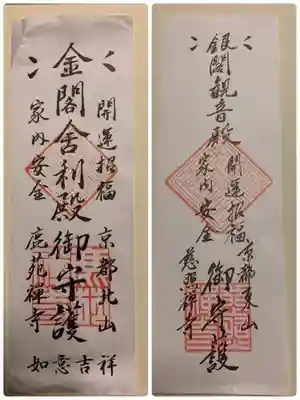 金閣舎利殿御守護
開運招福
京都北山
家内安全
鹿苑禅寺
如意吉祥
銀閣観音殿
御守護
開運招福
京都東山
家内安全
慈照禅寺